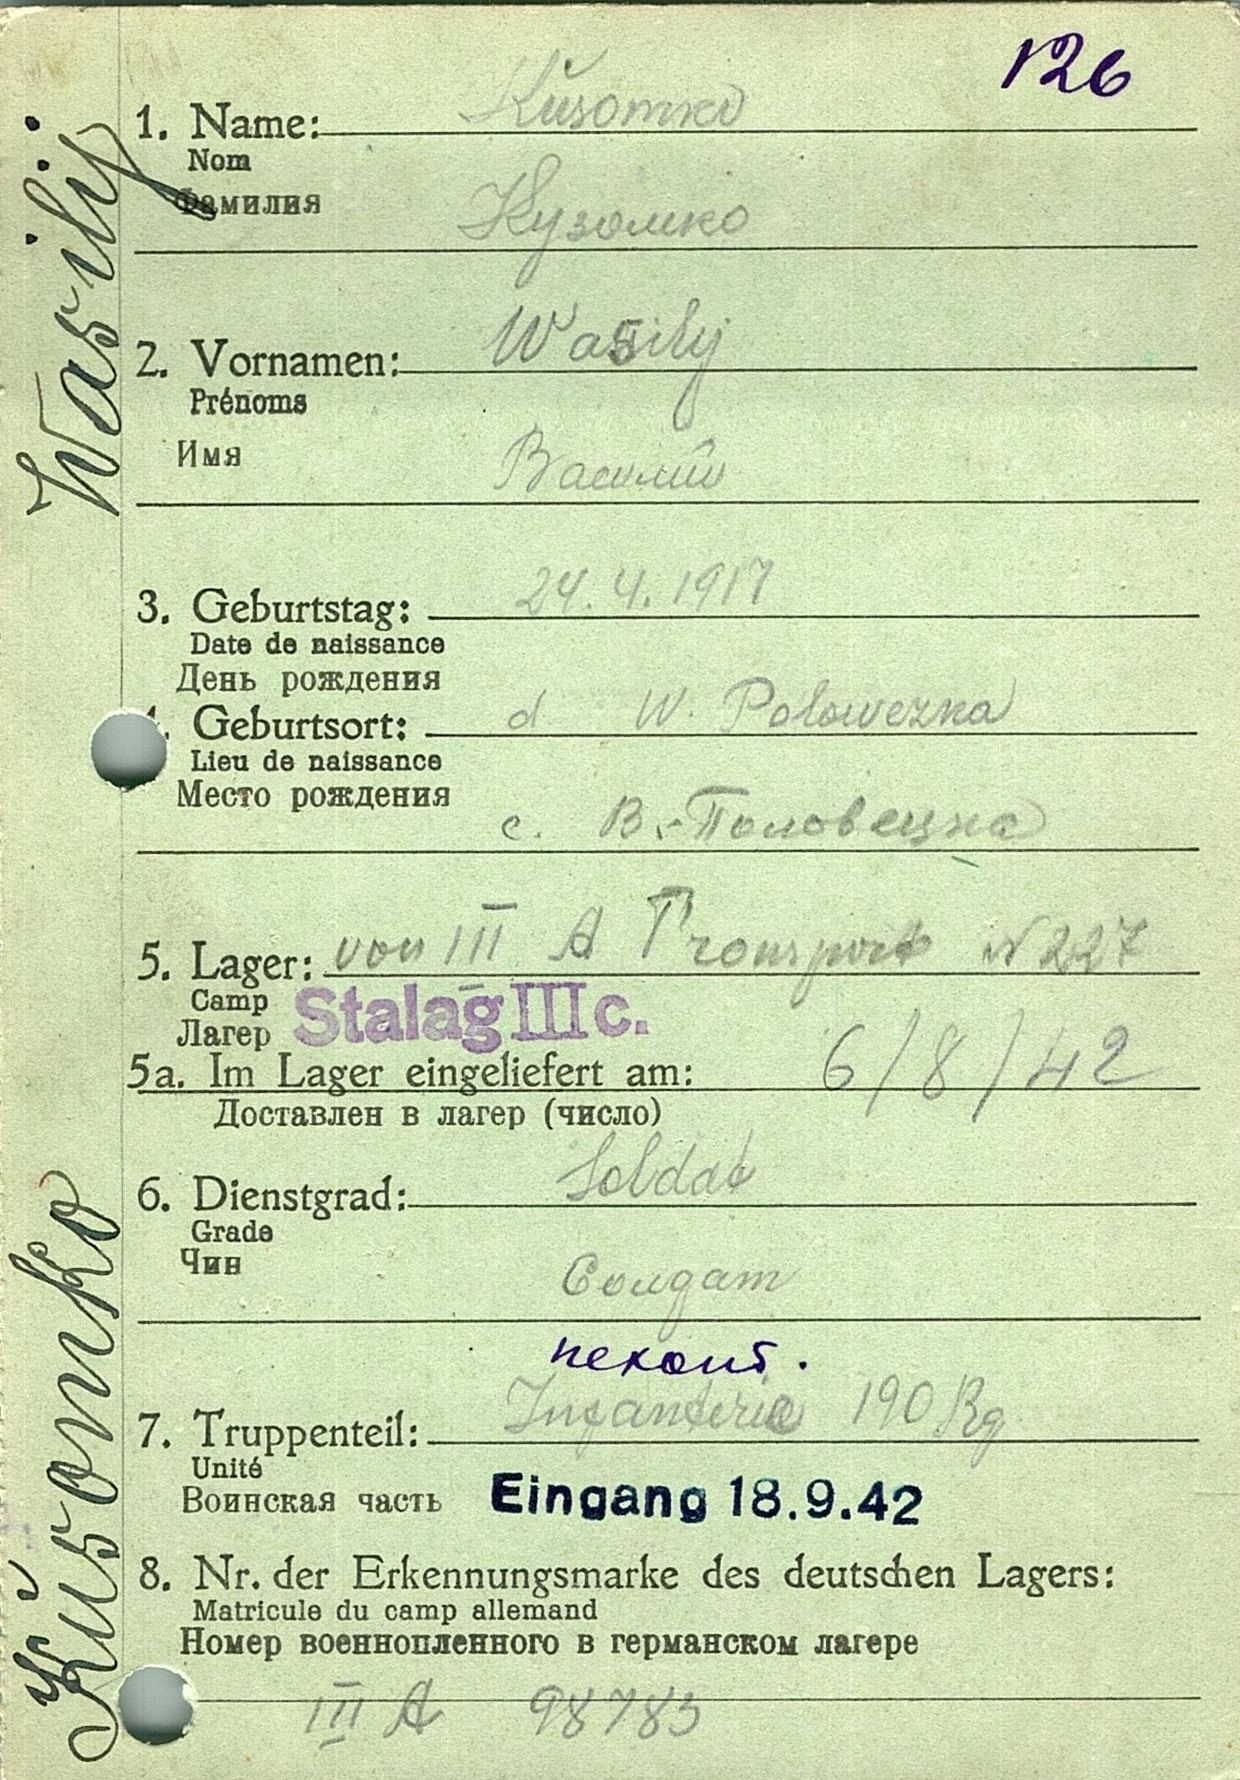 126
1. Name: Kusomko
Nom
Фамилия
Кузомко
2. Vornamen: Wasilij
Prénoms
Имя
Василий
3. Geburtstag: 24.4.1917
Date de naissance
День рождения
4. Geburtsort: d W. Polowezka
Lieu de naissance
Место рождения
с. В.-Половецка
5. Lager: von III A Transport N 227
Camp
Лагер
Stalag III c.
5a. Im Lager eingeliefert am: 6/8/42
Доставлен в лагер (число)
6. Dienstgrad: Soldat
Grade
Чин
Солдат
пехот.
7. Truppenteil: Infanterie 190 Rg
Unité
Воинская часть
Eingang 18.9.42
8. Nr. der Erkennungsmarke des deutschen Lagers:
Matricule du camp allemand
Номер военнопленного в германском лагере
III A 98783
Kusonko Wasilij